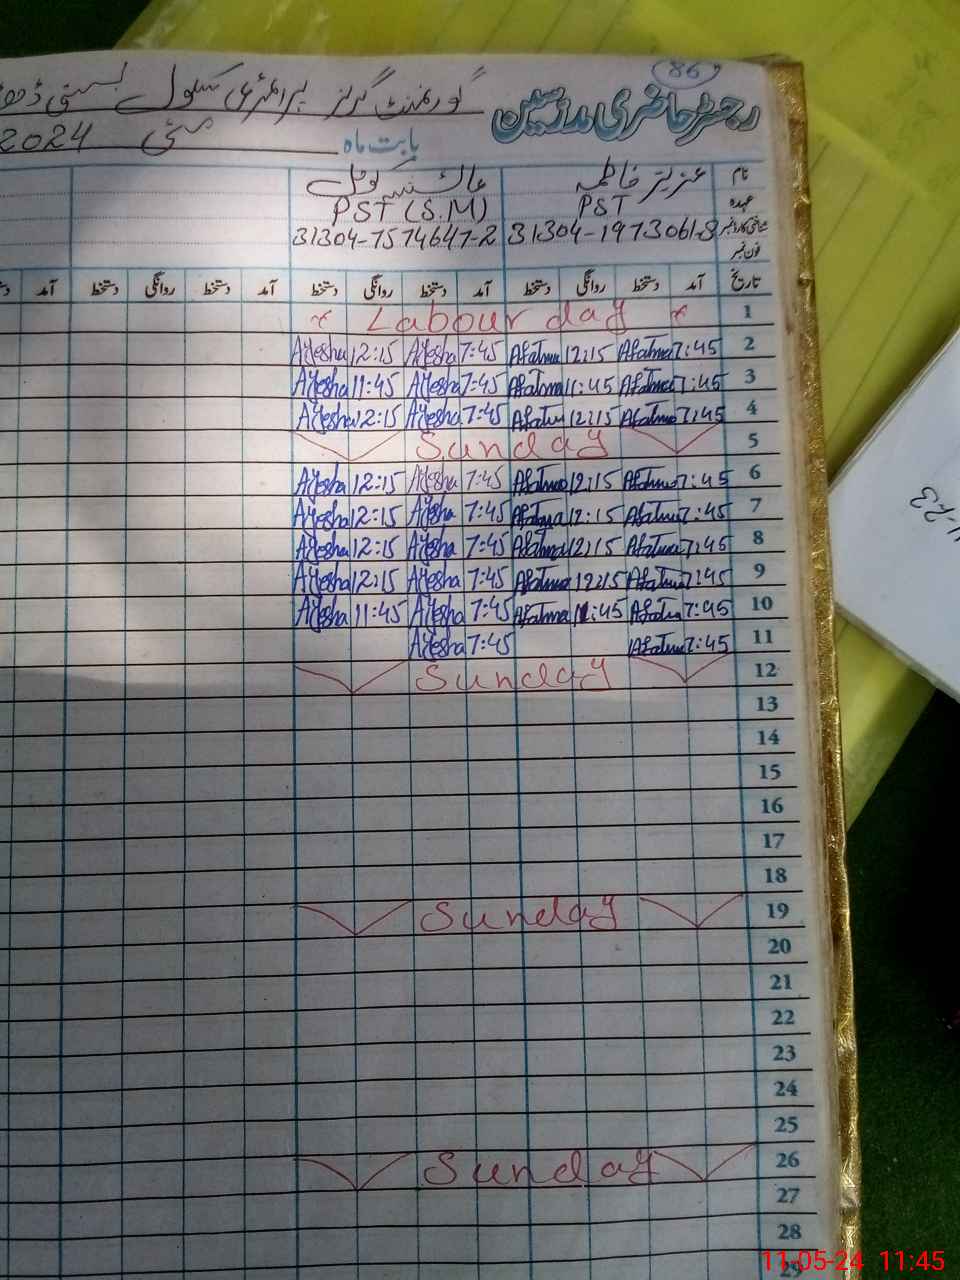 86
رجسٹر حاضری مدرسین گورنمنٹ گرلز پرائمری سکول بستی
بابت ماہ مئی 2024
نام عزیز فاطمہ عائشہ کوثل
عہدہ PST PST (S.M)
شناختی کارڈ نمبر 31304-1973061-8 31304-7574647-2
فون نمبر
تاریخ آمد دستخط روانگی دستخط آمد دستخط روانگی دستخط آمد دستخط روانگی دستخط آمد
1 × Labour day ×
2 7:45 Afatma 12:15 Afatma 7:45 Ayesha 12:15 Ayesha
3 7:45 Afatma 11:45 Afatma 7:45 Ayesha 11:45 Ayesha
4 7:45 Afatma 12:15 Afatma 7:45 Ayesha 12:15 Ayesha
5 Sunday
6 7:45 Afatma 12:15 Afatma 7:45 Ayesha 12:15 Ayesha
7 7:45 Afatma 12:15 Afatma 7:45 Ayesha 12:15 Ayesha
8 7:45 Afatma 12:15 Afatma 7:45 Ayesha 12:15 Ayesha
9 7:45 Afatma 12:15 Afatma 7:45 Ayesha 12:15 Ayesha
10 7:45 Afatma 11:45 Afatma 7:45 Ayesha 11:45 Ayesha
11 7:45 Afatma 7:45 Ayesha
12 Sunday
13
14
15
16
17
18
19 Sunday
20
21
22
23
24
25
26 Sunday
27
28
29
11-05-24 11:45